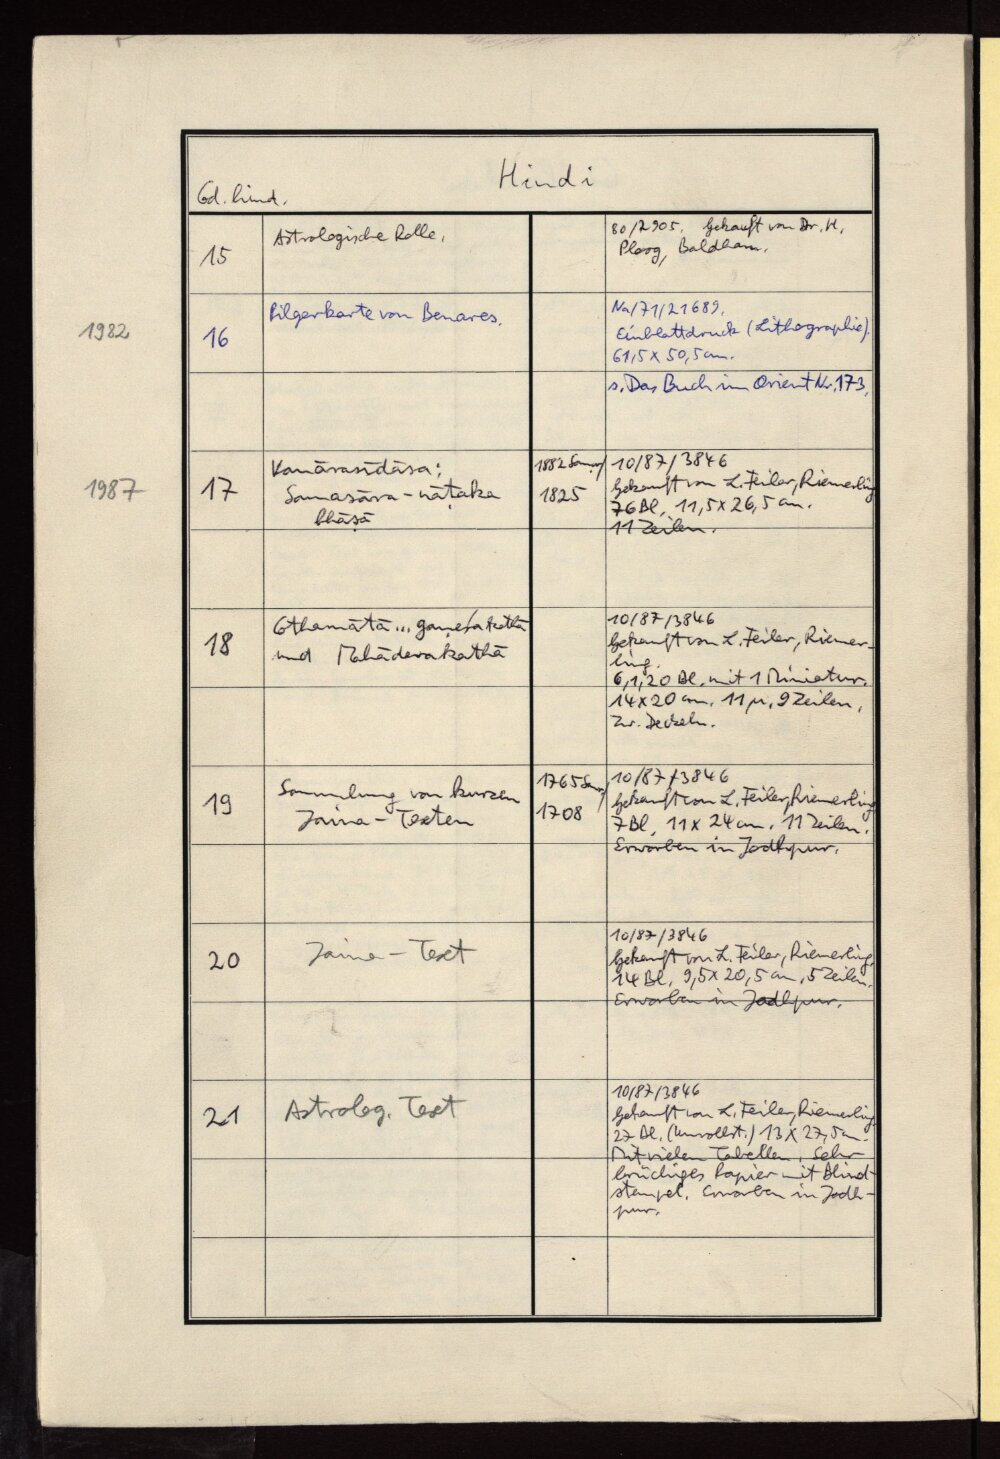 Hindi
Cod. hind.
15
Astrologische Rolle.
80/2905. Gekauft von Dr. H.
Ploog, Baldham.
1982
16
Pilgerkarte von Benares.
Na/71/21689.
Einblattdruck (Lithographie).
61,5 x 50,5 cm.
s. Das Buch im Orient Nr. 173.
1987
17
Vanārasīdāsa:
Samasāra-nāṭaka
bhāṣā
1882 Samv/
1825
10/87/3846
Gekauft von L. Feiler, Riemerling
76 Bl. 11,5 x 26,5 cm.
11 Zeilen.
18
Cthamātā... gaṇeśakathā
und Mahādevakathā
10/87/3846
Gekauft von L. Feiler, Riemer-
ling.
6,1,20 Bl. mit 1 Miniatur.
14 x 20 cm. 11 u. 9 Zeilen.
Zw. Deckeln.
19
Sammlung von kurzen
Jaina-Texten
1765 Samv/
1708
10/87/3846
Gekauft von L. Feiler, Riemerling
7 Bl. 11 x 24 cm. 11 Zeilen.
Erworben in Jodhpur.
20
Jaina-Text
10/87/3846
Gekauft von L. Feiler, Riemerling.
14 Bl. 9,5 x 20,5 cm. 5 Zeilen.
Erworben in Jodhpur.
21
Astrolog. Text
10/87/3846
Gekauft von L. Feiler, Riemerling
27 Bl. (unvollst.) 13 x 27,5 cm.
Mit vielen Tabellen. Sehr
brüchiges Papier mit Blind-
stempel. Erworben in Jodh-
pur.